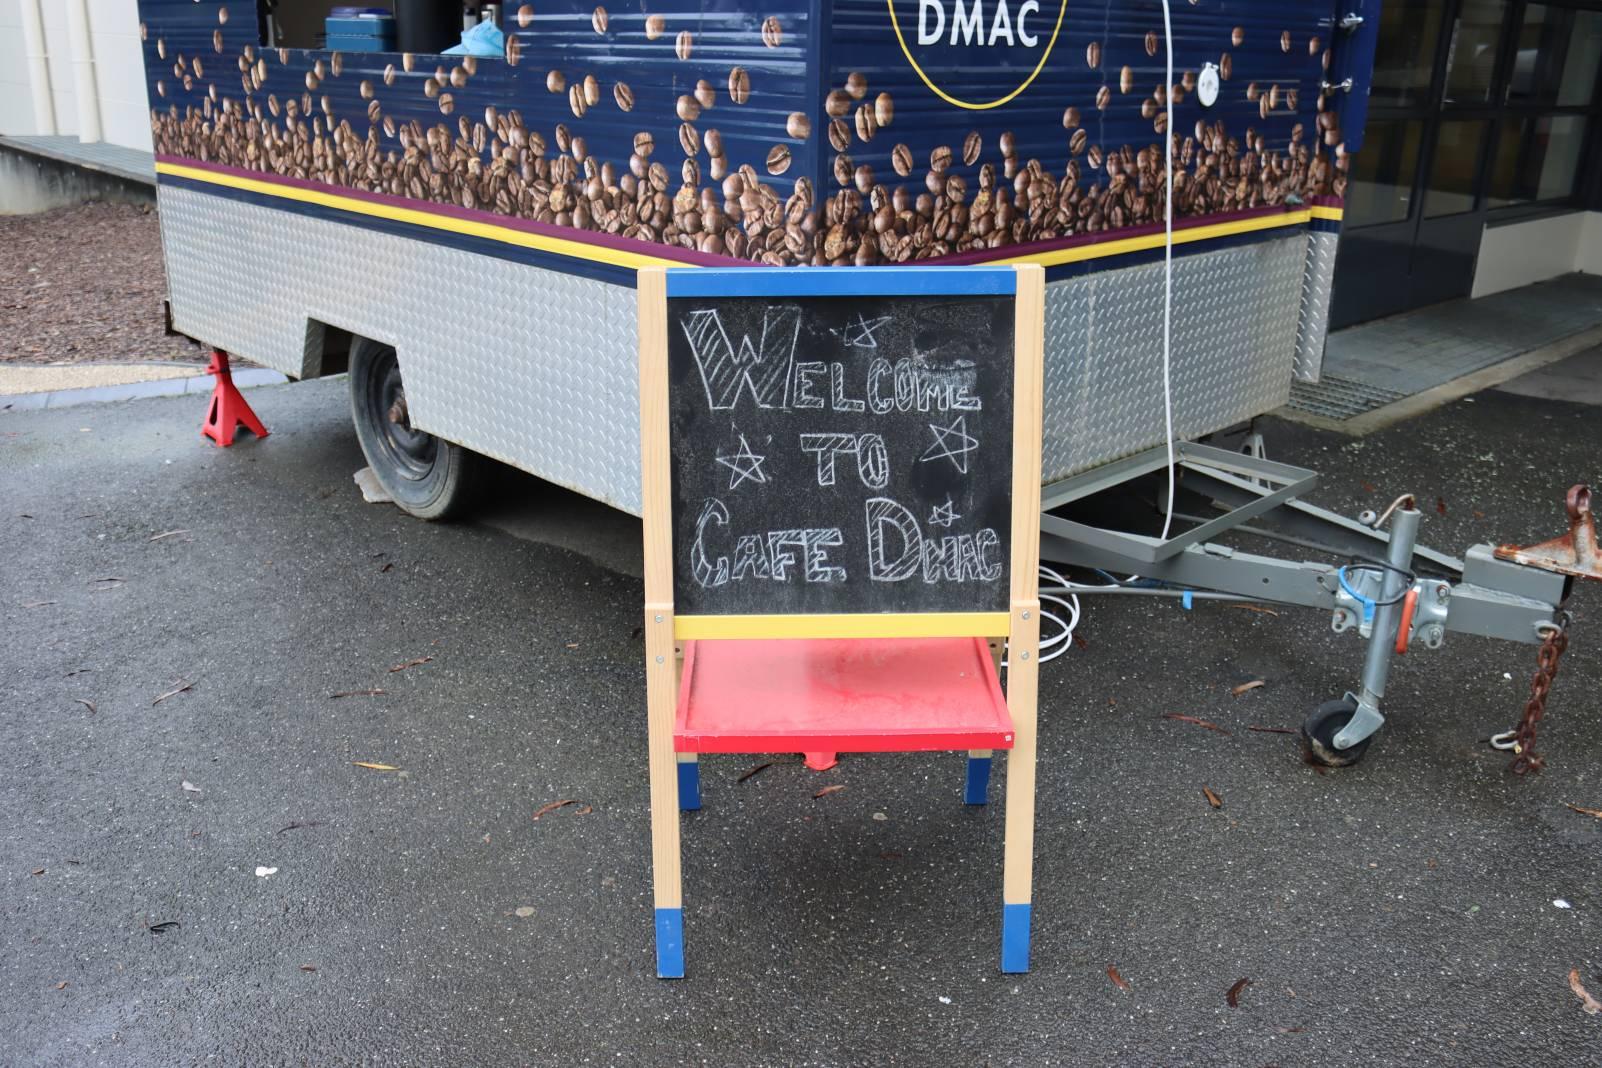 DMAC
WELCOME
TO
CAFE DMAC